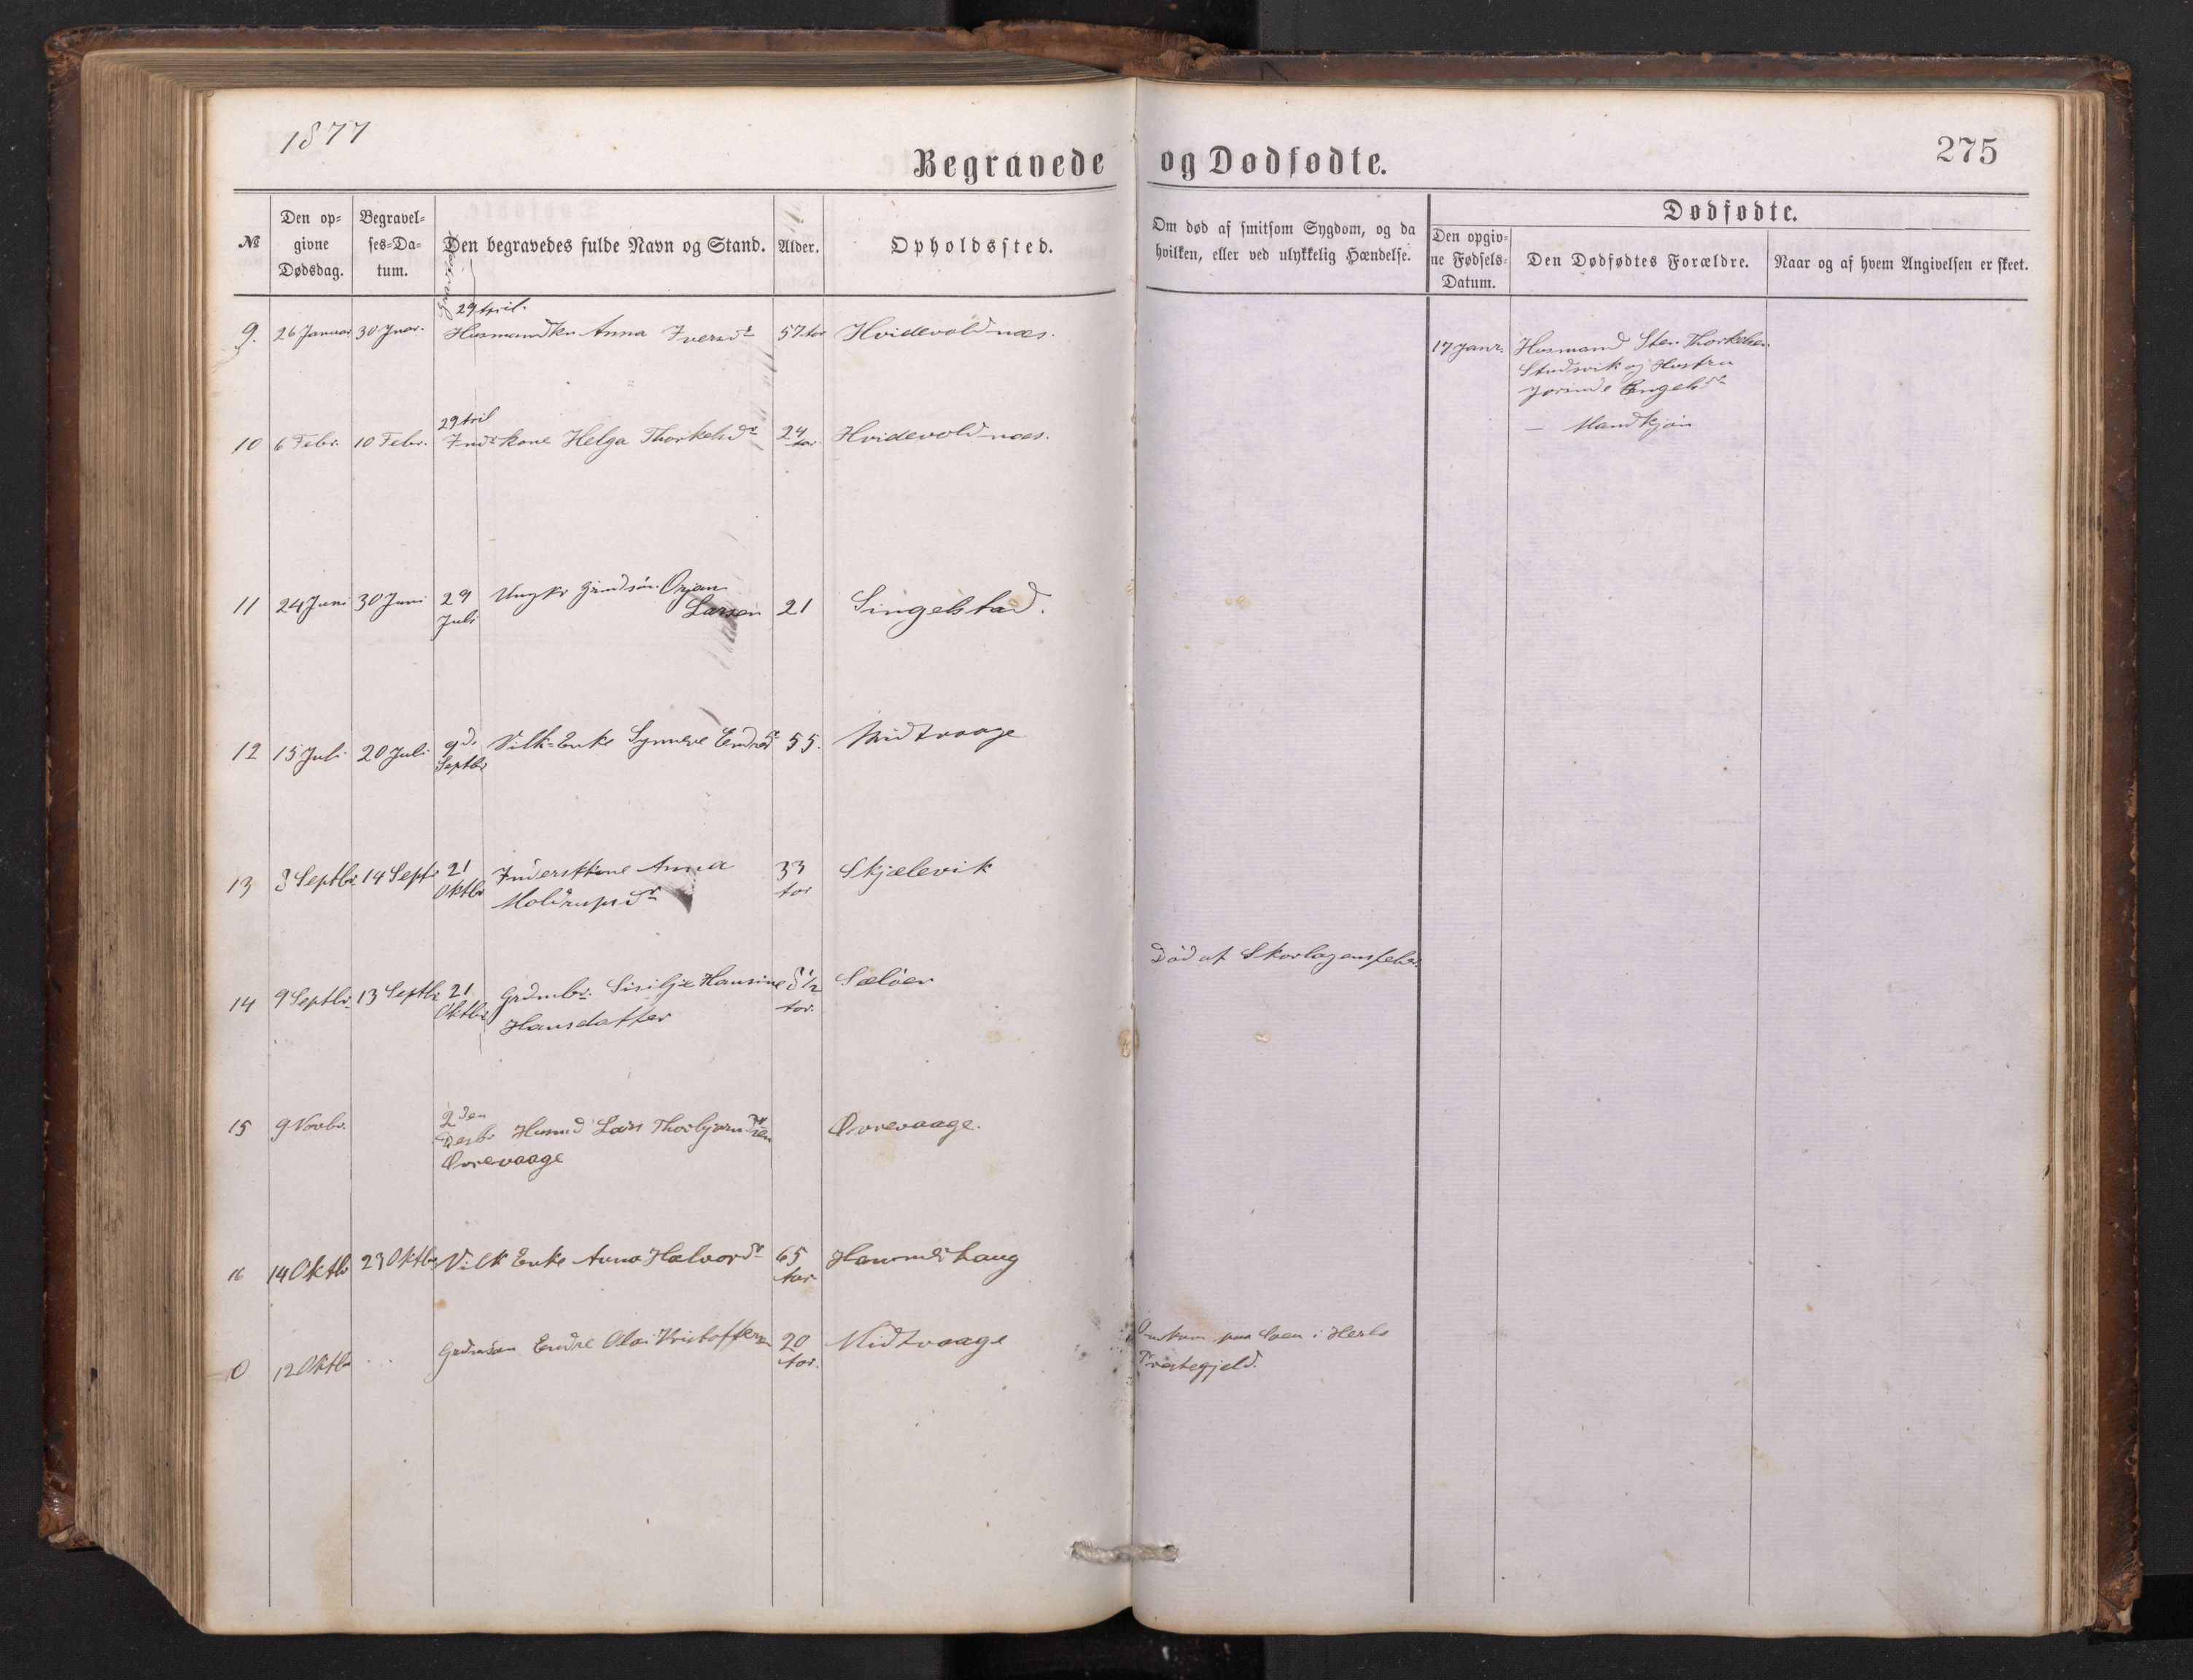 1877
Begravede og Dødfødte.
275
№
Den op-
givne
Dødsdag.
Begravel-
ses-Da-
tum.
Den begravedes fulde Navn og Stand.
Alder.
Opholdssted.
Om død af smitsom Sygdom, og da
hvilken, eller ved ulykkelig Hændelse.
Dødfødte.
Den opgiv-
ne Fødsels-
Datum.
Den Dødfødtes Forældre.
Naar og af hvem Angivelsen er skeet.
29 April.
9. 26 Januar 30 Jnar. Husmandkn Anna Iversdr 57 aar Hvidevoldnæs.
17 Janr. Husmand Sten Thorkelsen
Studsvik og Hustru
Jorinde Engelsdr
— Mandkjøn
29 April
10 6 Febr. 10 Febr. Indrkone Helga Thorkelsdr 24 aar. Hvidevoldnæs.
11 24 Juni 30 Juni 29 Ungkr Grmdsøn Ørjan
Juli Larsen 21 Singelstad.
12 15 Juli 20 Juli 9d. Vilk=Enke Synneve Endresdr 55. Midtvaage
Septbr
13 3 Septbr. 14 Septr 21 Inderstkone Anna 33 Skjælevik
Oktbr Moldrupsdr aar
Död af Skarlagensfeber.
14 9 Septbr. 13 Septbr 21 Grdmbr. Sisilje Hansine 8 1/2 Sæløen
Oktbr Hansdatter aar.
15 9 Novbr. 2den
Desbr Husmd Lars Thorbjørnsen Øvrevaage.
Øvrevaage
16 14 Oktb 23 Oktbr Vilk Enke Anna Halvordr 65 Hammerhaug
aar
0 12 Oktbr . . . Grdmsøn Endre Olai Kristoffersen 20 Midtvaage
aar.
Omkom paa Søen i Herlø
Præstegjeld.